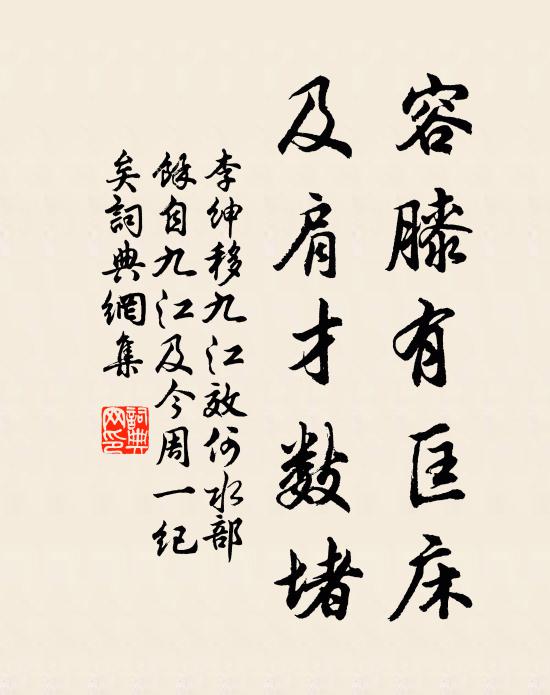 容膝有匡床
及肩才数堵
李绅移九江效何水部
馀自九江及今周一纪
矣詞典網集
詞典
网印